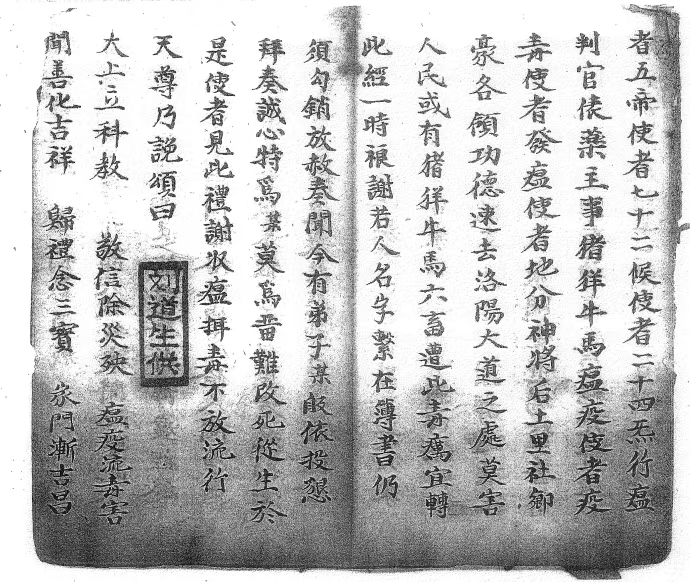 者五帝使者七十二候使者二十四炁行瘟
判官俵藥主事猪牂牛馬瘟疫使者疫
毒使者發瘟使者地分神將后土里社鄉
豪各領功德速去洛陽大道之處莫害
人民或有猪牂牛馬六畜遭此毒癘宜轉
此經一時禳謝若人名字繫在薄書仍
須勾銷放赦奏聞今有弟子某皈依投懇
拜奏誠心特爲某莫爲畨難改死從生於
是使者見此禮謝收瘟捐毒不放流行
天尊乃說頌曰
大上立科教 敬信除災殃 瘟疫流毒害
聞善化吉祥 歸禮念三寶 家門漸吉昌
刘道生供